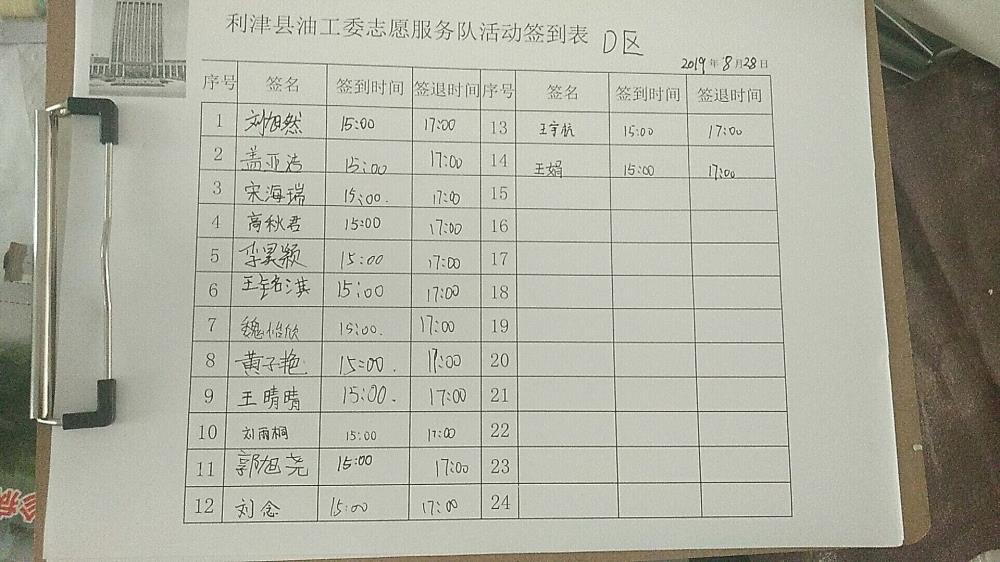 利津县油工委志愿服务队活动签到表 D区
2019年8月28日
序号 签名 签到时间 签退时间 序号 签名 签到时间 签退时间
1 刘旭然 15:00 17:00 13 王宇航 15:00 17:00
2 盖亚洁 15:00 17:00 14 王娟 15:00 17:00
3 宋海瑞 15:00. 17:00 15
4 高秋君 15:00 17:00 16
5 李昊颖 15:00 17:00 17
6 王铭淇 15:00 17:00 18
7 魏怡欣 15:00. 17:00 19
8 黄子艳 15:00. 17:00 20
9 王晴晴 15:00. 17:00 21
10 刘雨桐 15:00 17:00 22
11 郭旭尧 15:00 17:00 23
12 刘念 15:00 17:00 24